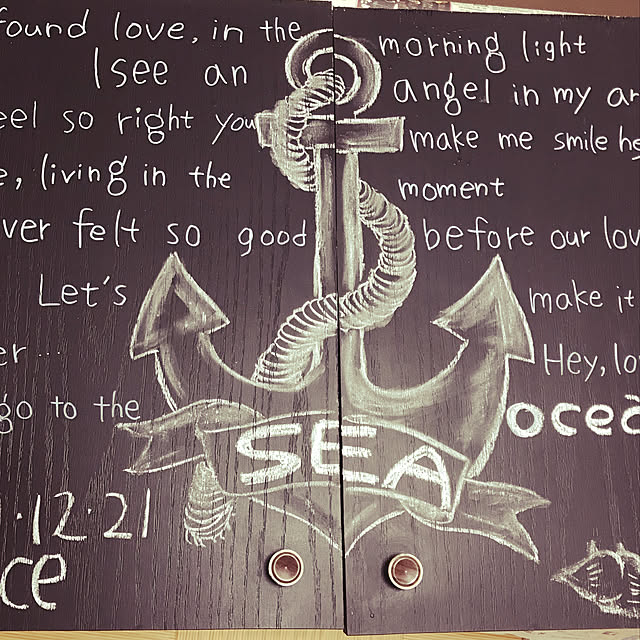 found love, in the morning light
I see an angel in my ar
eel so right you make me smile he
e, living in the moment
ver felt so good before our lov
Let's make it
er... Hey, lo
go to the ocea
SEA
1.12.21
ce